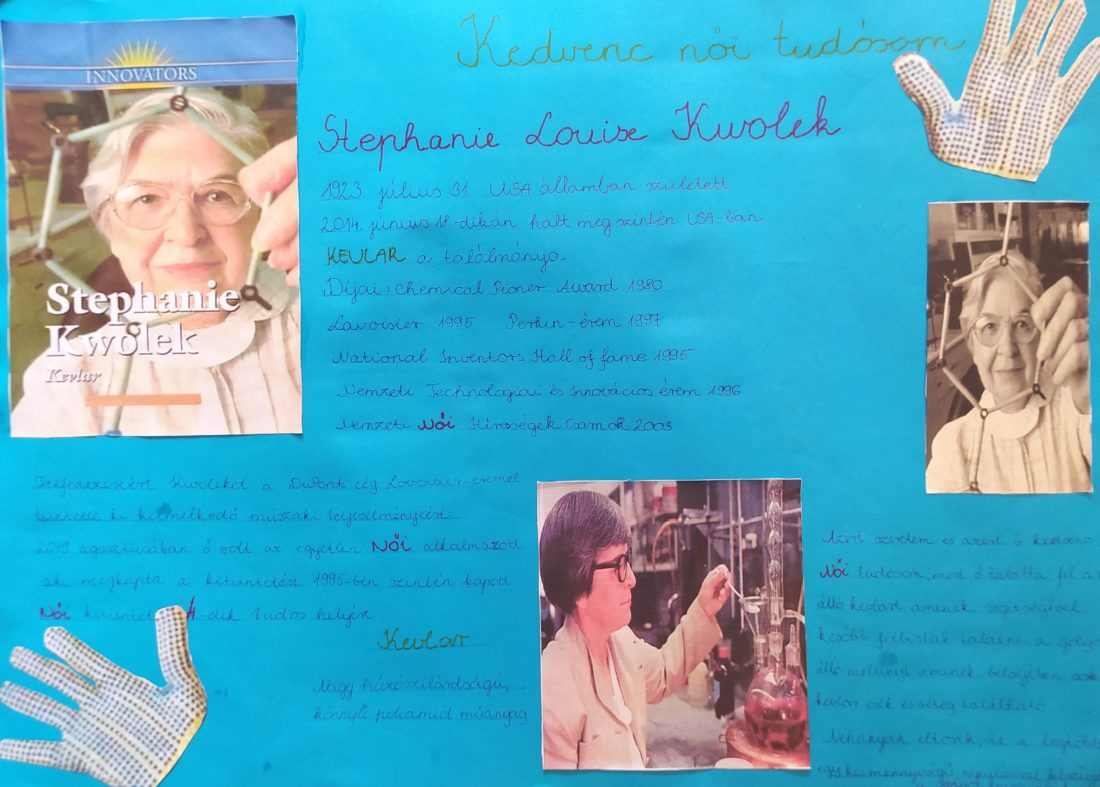 Kedvenc női tudósom
INNOVATORS
Stephanie
Kwolek
Kevlar
Stephanie Louise Kwolek
1923. július 31 USA államban született
2014. június 18.-dikán halt meg szintén USA-ban
KEVLAR a találmánya
Díjai: Chemical Pioner Award 1980
Lavoisier 1995 Perkin-érem 1997
National Inventors Hall of fame 1995
Nemzeti Technológiai és Innovációs érem 1996
Nemzeti Női Hírességek Csarnok 2003
Felfedezéséért Kwoleket a DuPont cég Lavoisier-éremel
tüntette ki kiemelkedő műszaki teljesítményéért
2019 agusztusában ő volt az egyetlen Női alkalmazott
aki megkapta a kitüntetést. 1995-ben szintén kapott
Női 4-dik tudos helyért
Kevlar
Nagy húzószilárdságú,
könnyű poliamid műanyag
Azért szeretem és azért a kedvenc
Női tudósom, mert ő találta fel a
álló kevlárt aminek segítségével
később feltudták találni a golyó
álló mellényt aminek belsejében sok
kevlar cék és réteg található
Néhányan eltörik, de a legtöbb
egy kis mennyiségű nyúlással